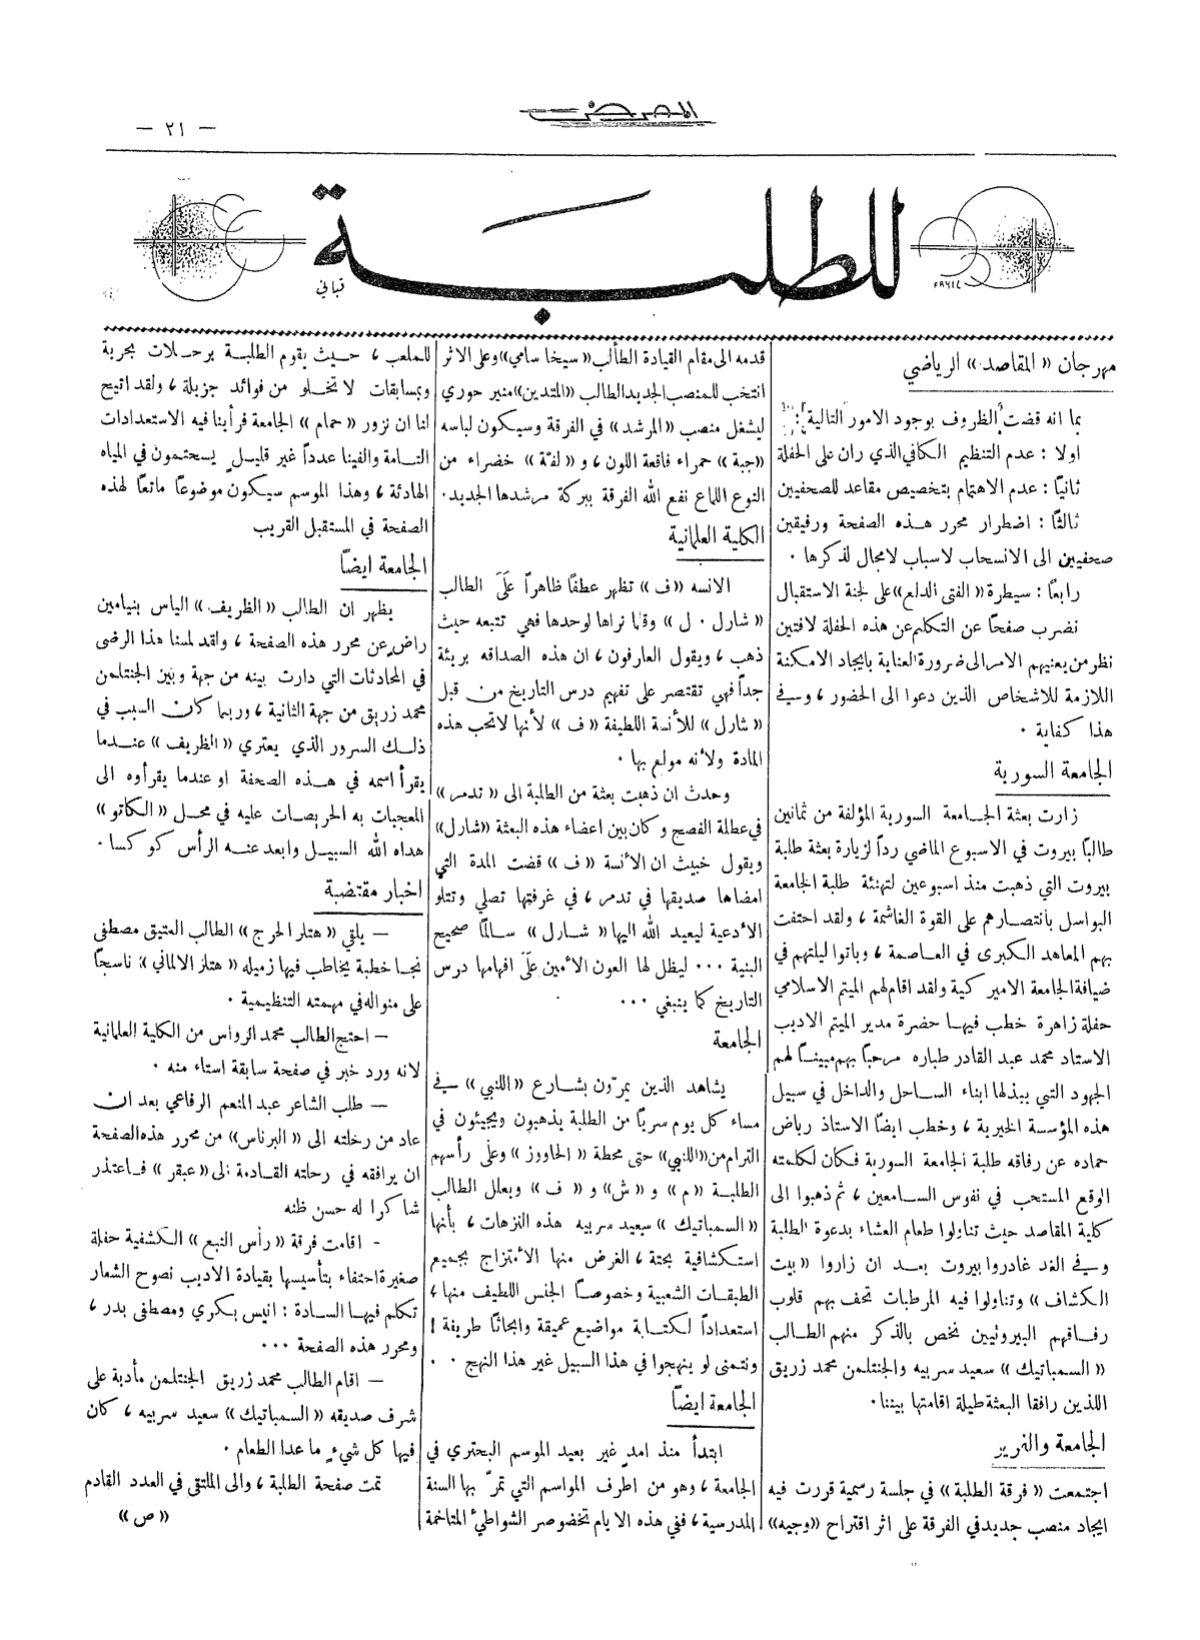 المعرض
— ٢١ —
للطلبة
قباني
مهرجان «المقاصد» الرياضي
بما انه قضت الظروف بوجود الامور التالية :
اولا : عدم التنظيم الكافي الذي ران على الحفلة
ثانيًا : عدم الاهتمام بتخصيص مقاعد للصحفيين
ثالثًا : اضطرار محرر هذه الصفحة ورفيقين
صحفيين الى الانسحاب لاسباب لا مجال لذكرها .
رابعًا : سيطرة «الفتى الدلع» على لجنة الاستقبال
نضرب صفحًا عن التكلم عن هذه الحفلة لافتين
نظر من يعنيهم الامر الى ضرورة العناية بايجاد الامكنة
اللازمة للاشخاص الذين دعوا الى الحضور ، وفي
هذا كفاية .
الجامعة السورية
زارت بعثة الجامعة السورية المؤلفة من ثمانين
طالبًا بيروت في الاسبوع الماضي رداً لزيارة بعثة طلبة
بيروت التي ذهبت منذ اسبوعين لتهنئة طلبة الجامعة
البواسل بأنتصارهم على القوة الغاشمة ، ولقد احتفت
بهم المعاهد الكبرى في العاصمة ، وباتوا ليلتهم في
ضيافة الجامعة الاميركية ولقد اقام لهم الميتم الاسلامي
حفلة زاهرة خطب فيها حضرة مدير الميتم الاديب
الاستاد محمد عبد القادر طباره مرحبًا بهم مبينًا لهم
الجهود التي يبذلها ابناء الساحل والداخل في سبيل
هذه المؤسسة الخيرية ، وخطب ايضًا الاستاذ رياض
حماده عن رفاقه طلبة الجامعة السورية فكان لكلمته
الوقع المستحب في نفوس السامعين ، ثم ذهبوا الى
كلية المقاصد حيث تناولوا طعام العشاء بدعوة الطلبة
وفي الغد غادروا بيروت بعد ان زاروا «بيت
الكشاف» وتناولوا فيه المرطبات تحف بهم قلوب
رفاقهم البيروتيين نخص بالذكر منهم الطالب
«السمباتيك» سعيد سربيه والجنتلمن محمد زريق
اللذين رافقا البعثة طيلة اقامتها بيننا.
الجامعة والفرير
اجتمعت «فرقة الطلبة» في جلسة رسمية قررت فيه
ايجاد منصب جديد في الفرقة على اثر اقتراح «وجيه»
قدمه الى مقام القيادة الطالب «سيخا سامي» وعلى الاثر
انتخب للمنصب الجديد الطالب «المتدين» منير حوري
ليشغل منصب «المرشد» في الفرقة وسيكون لباسه
«جبة» حمراء فاقعة اللون ، و «لفة» خضراء من
النوع اللماع نفع الله الفرقة ببركة مرشدها الجديد.
الكلية العلمانية
الانسه «ف» تظهر عطفًا ظاهراً على الطالب
«شارل . ل» وقلما نراها لوحدها فهي تتبعه حيث
ذهب ، ويقول العارفون ، ان هذه الصداقه بريئة
جداً فهي تقتصر على تفهيم درس التاريخ من قبل
«شارل» للأنسة اللطيفة «ف» لأنها لا تحب هذه
المادة ولأنه مولع بها .
وحدث ان ذهبت بعثة من الطلبة الى «تدمر»
في عطلة الفصح وكان بين اعضاء هذه البعثة «شارل»
ويقول خبيث ان الأنسة «ف» قضت المدة التي
امضاها صديقها في تدمر ، في غرفتها تصلي وتتلو
الأدعية ليعيد الله اليها «شارل» سالمًا صحيح
البنية ... ليظل لها العون الأمين على افهامها درس
التاريخ كما ينبغي ...
الجامعة
يشاهد الذين يمرّون بشارع «اللنبي» في
مساء كل يوم سربًا من الطلبة يذهبون ويجيئون في
الترام من «اللنبي» حتى محطة «الحاووز» وعلى رأسهم
الطلبة «م» و «ش» و «ف» ويعلل الطالب
«السمباتيك» سعيد سربيه هذه النزهات ، بأنها
استكشافية بحتة ، الغرض منها الأمتزاج بجميع
الطبقات الشعبية وخصوصًا الجنس اللطيف منها ،
استعداداً لكتابة مواضيع عميقة وابحاثًا طريفة !
ونتمنى لو ينهجوا في هذا السبيل غير هذا النهج . .
الجامعة ايضًا
ابتدأ منذ امد غير بعيد الموسم البحتري في
الجامعة ، وهو من اطرف المواسم التي تمرّ بها السنة
المدرسية ، ففي هذه الايام تخضوضر الشواطيء المتاخمة
للملعب ، حيث يقوم الطلبة برحلات بحرية
وبمسابقات لا تخلو من فوائد جزيلة ، ولقد اتيح
لنا ان نزور «حمام» الجامعة فرأينا فيه الاستعدادات
التامة والفينا عدداً غير قليل يستحتمون في المياه
الهادئة ، وهذا الموسم سيكون موضوعًا مائعًا لهذه
الصفحة في المستقبل القريب
الجامعة ايضًا
يظهر ان الطالب «الظريف» الياس بنيامين
راض عن محرر هذه الصفحة ، ولقد لمسنا هذا الرضى
في المحادثات التي دارت بينه من جهة وبين الجنتلمن
محمد زريق من جهة الثانية ، وربما كان السبب في
ذلك السرور الذي يعتري «الظريف» عندما
يقرأ اسمه في هذه الصحفة او عندما يقرأوه الى
المعجبات به الحريصات عليه في محل «الكاتو»
هداه الله السبيل وابعد عنه الرأس كوكسا .
اخبار مقتضبة
— يلقي «هتلر الحرج» الطالب العتيق مصطفى
نجا خطبة يخاطب فيها زميله «هتلر الالماني» ناسجًا
على منواله في مهمته التنظيمية .
— احتج الطالب محمد الرواس من الكلية العلمانية
لانه ورد خبر في صفحة سابقة استاء منه .
— طلب الشاعر عبد المنعم الرفاعي بعد ان
عاد من رحلته الى «البرناس» من محرر هذه الصفحة
ان يرافقه في رحلته القادمة الى «عبقر» فاعتذر
شاكرا له حسن ظنه
- اقامت فرقة «رأس النبع» الكشفية حفلة
صغيرة احتفاء بتأسيسها بقيادة الاديب نصوح الشعار
تكلم فيها السادة : انيس بكري ومصطفى بدر ،
ومحرر هذه الصفحة ...
— اقام الطالب محمد زريق الجنتلمن مأدبة على
شرف صديقه «السمباتيك» سعيد سربيه ، كان
فيها كل شيء ما عدا الطعام .
تمت صفحة الطلبة ، والى الملتقى في العدد القادم
«ص»